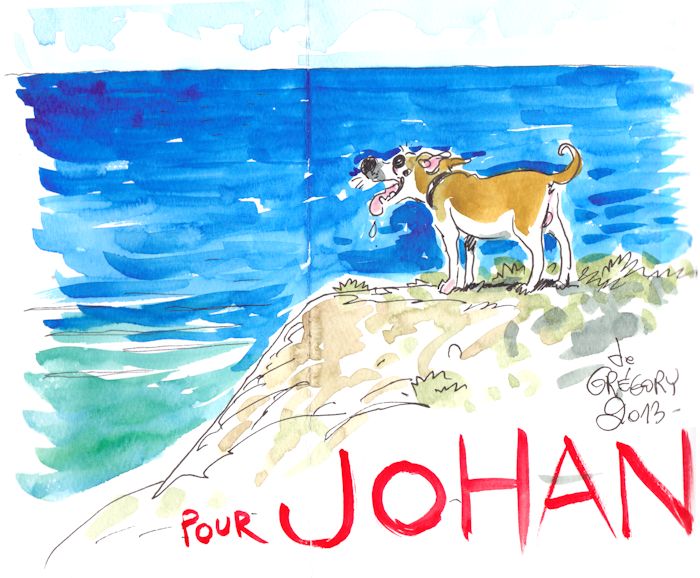 de
GRÉGORY
2013-
POUR JOHAN